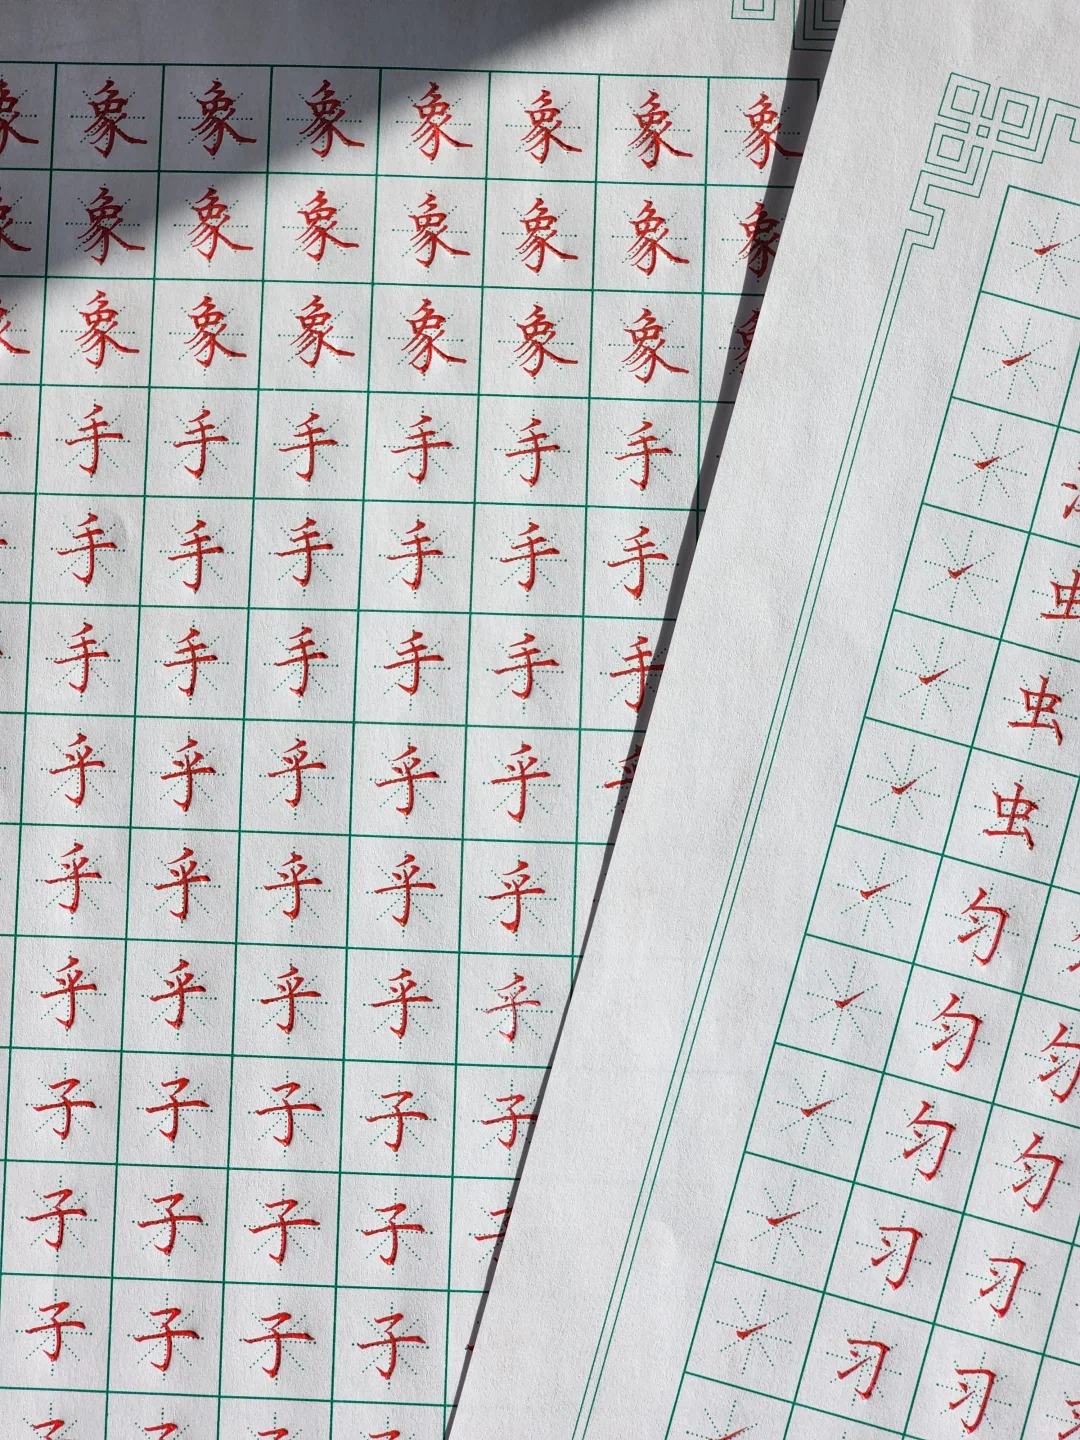 象象象象象象象
象象象象象象象
象象象象象象
手手手手手手
手手手手手手
手手手手手手
乎乎乎乎乎
乎乎乎乎乎
乎乎乎乎乎
子子子子子
子子子子
子子子子
虫
虫
虫
匀
匀匀
匀匀
习习
习习